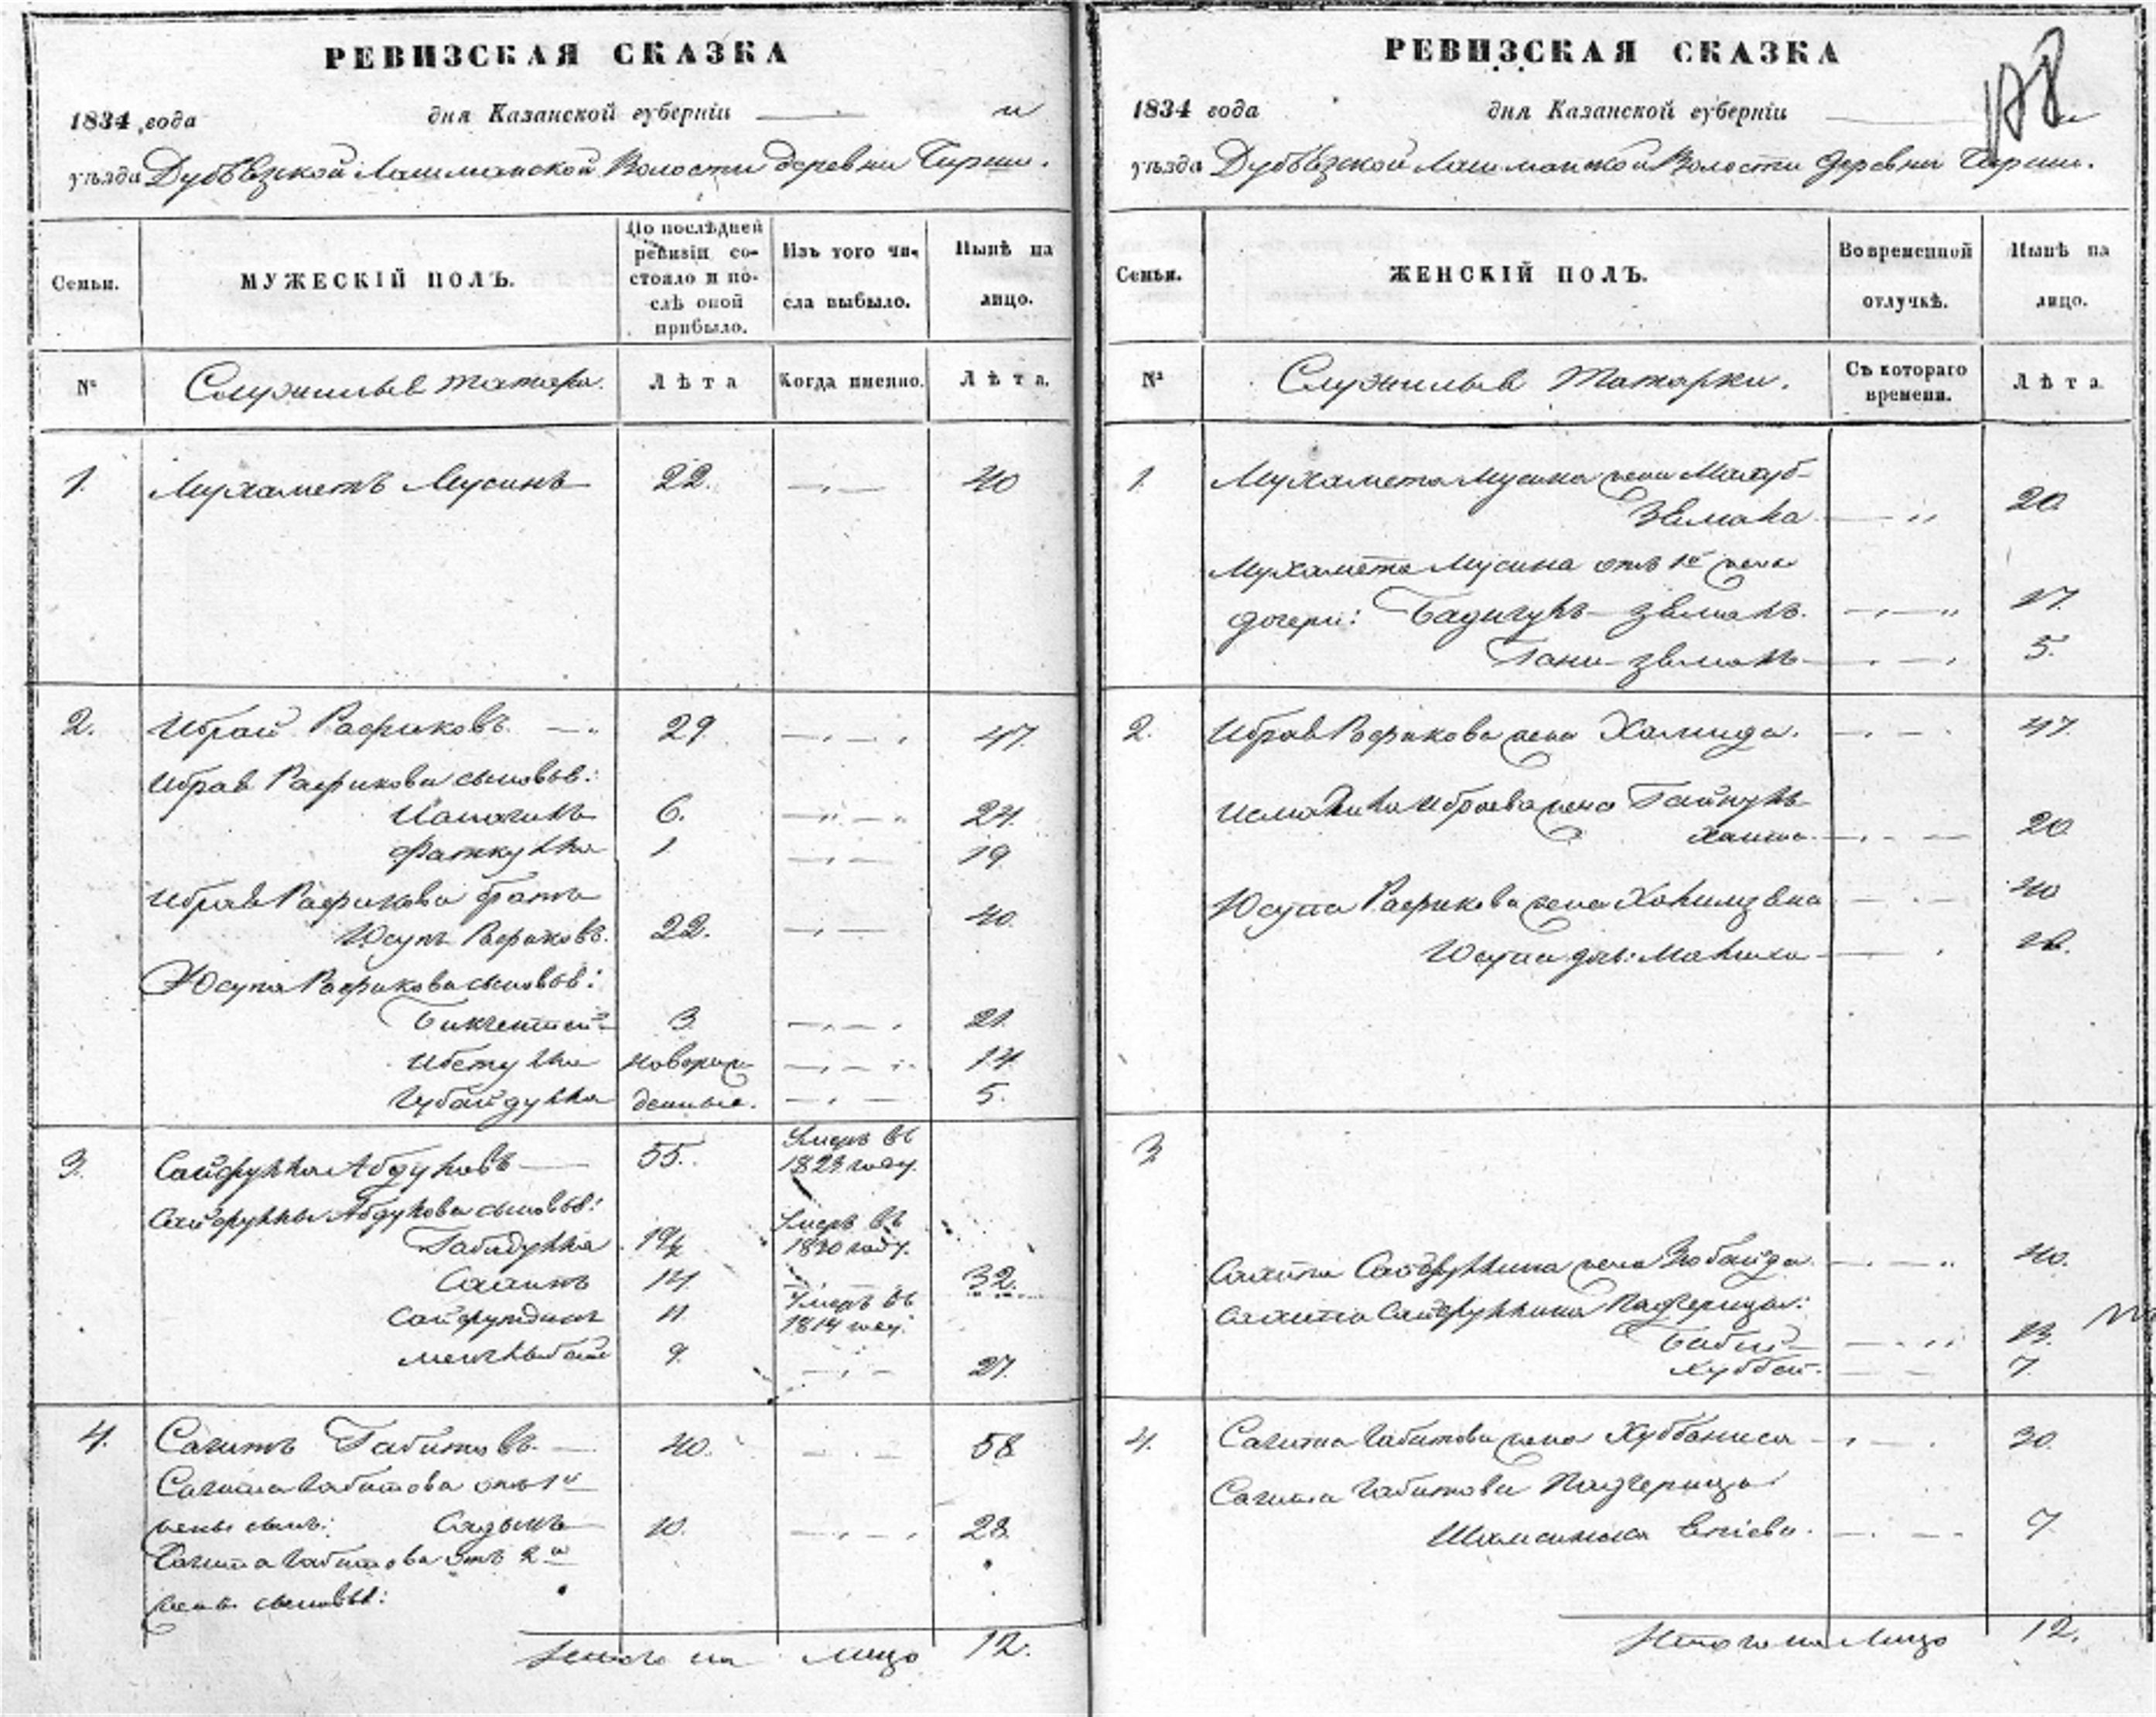 РЕВИЗСКАЯ СКАЗКА
1834 года дня Казанской губернiи и
уѣзда Дубъязской Лашманской Волости деревни Чирши.
Семьи.
МУЖЕСКIЙ ПОЛЪ.
По послѣдней ревизiи со-
стояло и по-
слѣ оной
прибыло.
Изъ того чи-
сла выбыло.
Нынѣ на
лицо.
№
Служилые татара.
Лѣта
Когда именно.
Лѣта.
1. Мухаметъ Мусинъ 22. 40
2. Ибрай Рафиковъ 29 47.
Ибрая Рафикова сыновья:
6. 24.
Фаткулла 1 19
Ибрая Рафикова братъ
Юсупъ Рафиковъ. 22. 40.
Юсупа Рафикова сыновья:
Бикчентей 3 21.
новорож- 14
Губайдулла денные. 5.
3. Сайфулла Абдуловъ 55. Умеръ въ
1823 году.
Сайфуллы Абдулова сыновья:
Габидулла 19½ Умеръ въ
1830 году.
14. 32.
11 Умеръ въ
1814 году.
9. 27.
4. Сагитъ Габитовъ 40. 58
Сагита Габитова отъ 1й
жены сынъ: Садыкъ 10. 28.
Сагита Габитова отъ 2й
жены сыновья:
Итого на лицо 12.
РЕВИЗСКАЯ СКАЗКА
1834 года дня Казанской губернiи
уѣзда Дубъязской Лашманской Волости деревни Чирши.
Семьи.
ЖЕНСКIЙ ПОЛЪ.
Во временной
отлучкѣ.
Нынѣ на
лицо.
№
Служилыя Татарки.
Съ котораго
времени.
Лѣта
1 Мухамета Мусина жена Махуб-
зямала 20.
Мухамета Мусина отъ 1й жены
дочери: Бадигулъ-зямалъ. 17.
Гани-зямалъ 5.
2. Ибрая Рафикова жена Халида. 47.
Ибраева жена
20
Юсупа Рафикова жена 40
Юсупа доч:
3
Сайфуллина жена Зобайда 40.
Сайфуллина Падчерицы:
Бабий 13.
Хуббей. 7.
4. Сагита Габитова жена Хуббаниса 30.
Сагита Габитова Падчерица
7
Итого на Лицо 12.